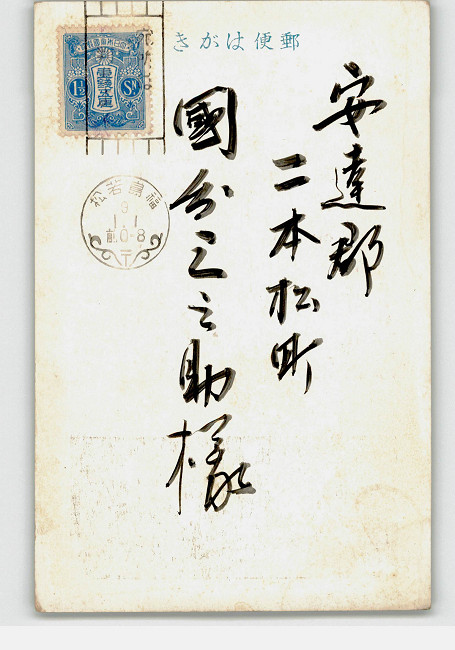 郵便はがき
安達郡
二本松町
國分三之助様
大日本帝國郵便
壹錢五厘
1½ Sn
福島若松
9
1.1
前0-8
〒